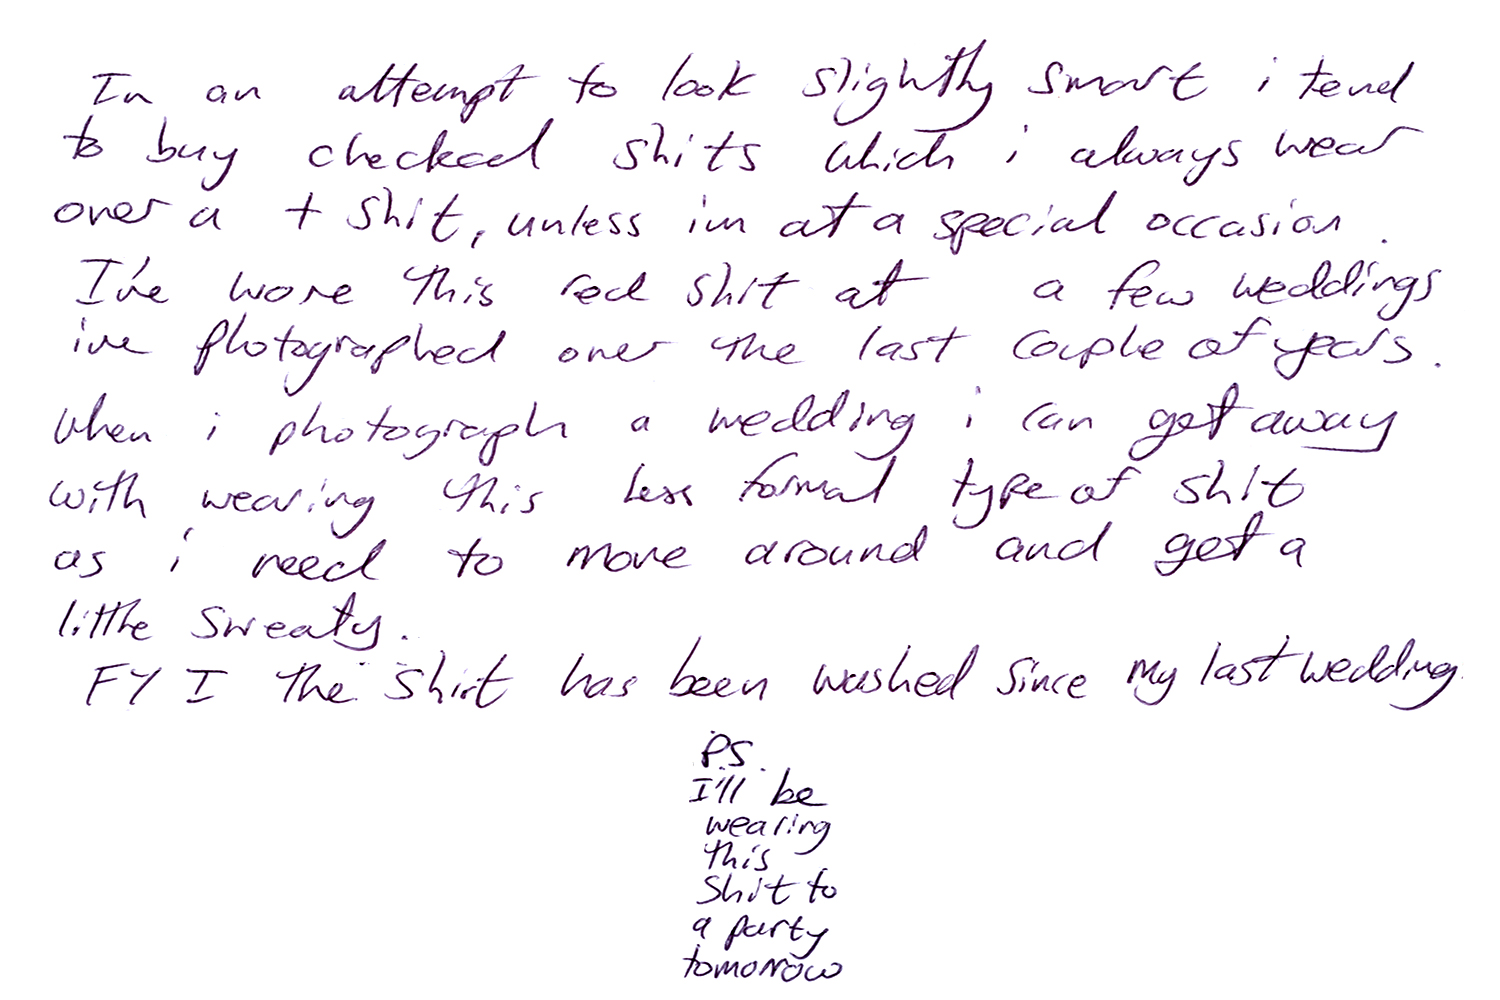 In an attempt to look slightly smart i tend
to buy checked shits which i always wear
over a t shit, unless im at a special occasion.
I've wore this red shit at a few weddings
ive photographed over the last couple of years.
When i photograph a wedding i can get away
with wearing this less formal type of shit
as i need to move around and get a
little sweaty.
FYI the shirt has been washed since my last wedding.
PS.
I'll be
wearing
this
shit to
a party
tomorrow